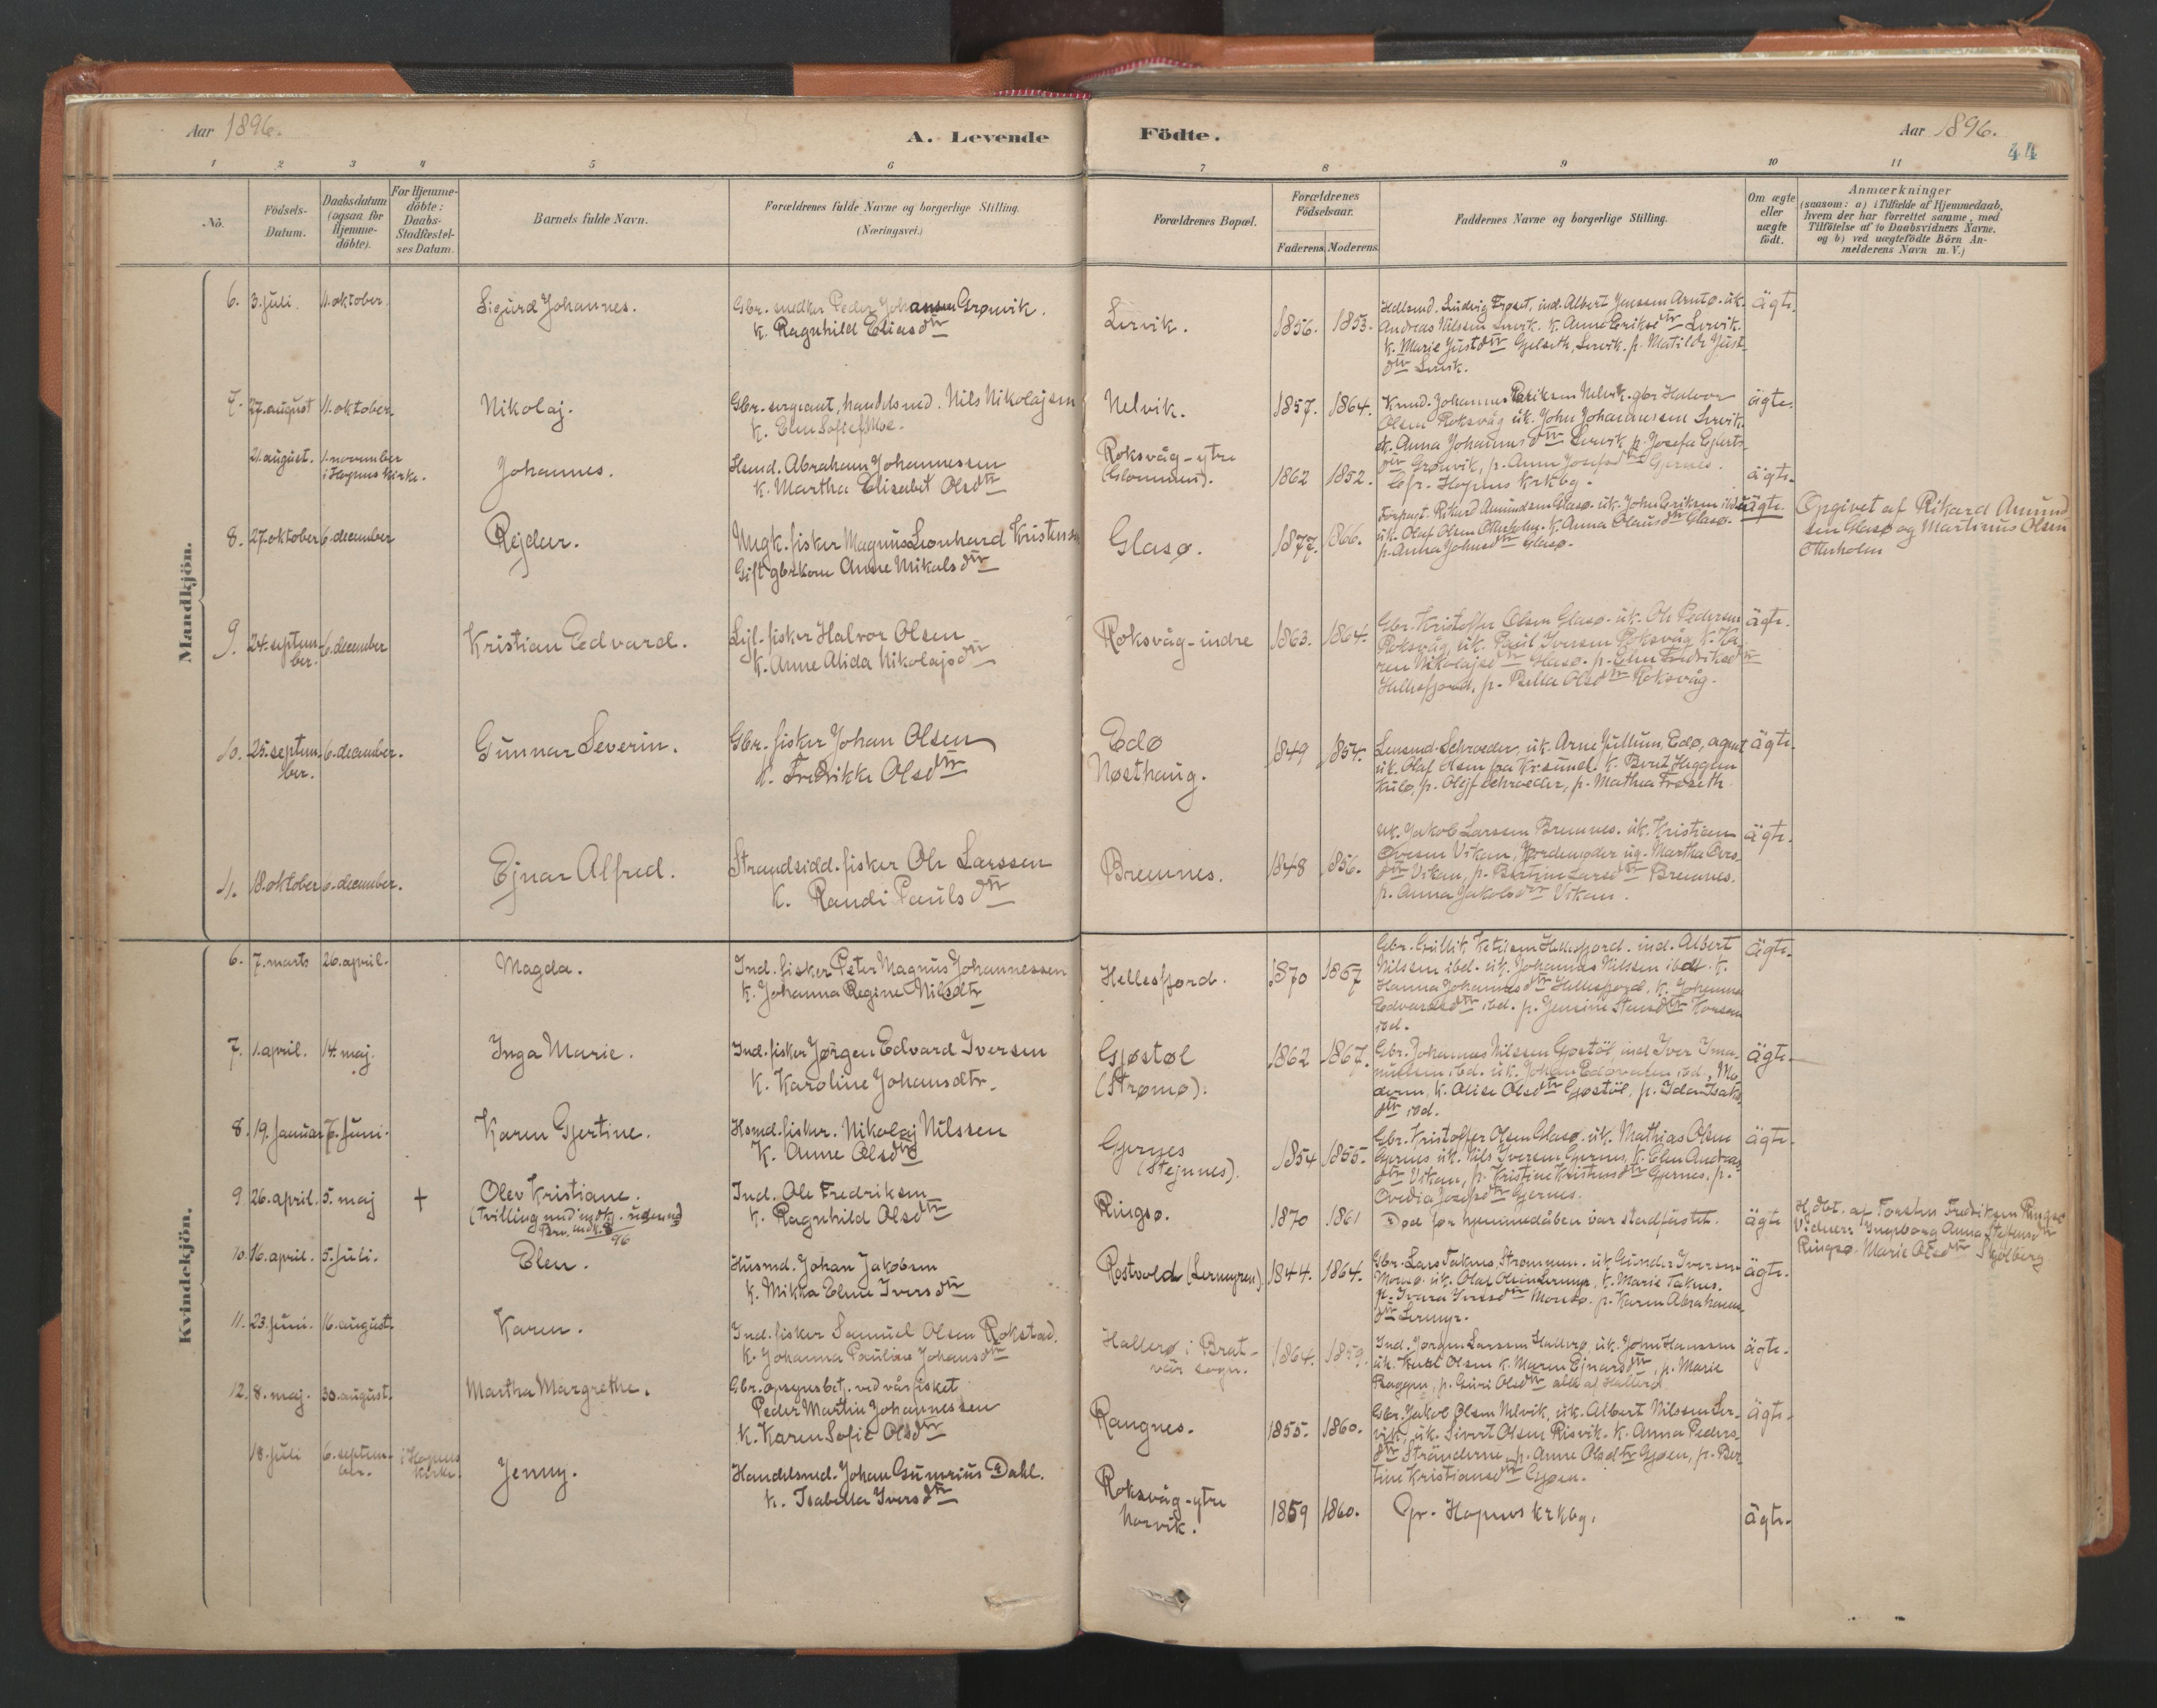 Aar 1896.
A. Levende
Födte.
Aar 1896.
44
1 2 3 4 5 6 7 8 9 10 11
No.
Födsels-Datum.
Daabsdatum (ogsaa for Hjemme-döbte).
For Hjemme-döbte: Daabs-Stadfæstel-ses Datum.
Barnets fulde Navn.
Forældrenes fulde Navne og borgerlige Stilling.
(Næringsvei.)
Forældrenes Bopæl.
Forældrenes Födselsaar.
Faderens. Moderens.
Faddernes Navne og borgerlige Stilling.
Om ægte eller uægte födt.
Anmærkninger
(saasom: a) i Tilfælde af Hjemmedaab, hvem der har forrettet samme, med Tilföielse af to Daabsvidners Navne, og b) ved uægtefödte Börn Anmelderens Navn m.V.)
Mandkjön.
6. 3. juli. 11. oktober. Sigurd Johannes. Gbr. snedker Peder Johansen Grønvik.
k. Ragnhild Eliasdtr
Lervik. 1856. 1853.
Ludvig Frøset, ind. Albert Jenssen Arntø. uk.
Andreas Nilssen Lervik. k. Anne Eriksdtr Lervik.
k. Marie Justdtr Gjelseth, Lervik. p. Matilde Just-
dtr Lervik.
ägte.
7. 27. august 11. oktober. Nikolaj. Gbr. sergeant, handelsmd. Nils Nikolajsen
k. Elen Sofie Moe.
Nelvik. 1857. 1864.
Johannes Eriksen Nelvik. gbr Halvor
Olsen Roksvåg uk. John Johannessen Lervik
k. Anna Johannesdtr Lervik p. Josefa Ejlerts-
dtr Grønvik, p. Anne Josefsdtr Gjernes.
ägte.
21. august. 1. november i Hopens kirke. Johannes. Hsmd. Abraham Johannessen
k. Martha Elisabet Olsdtr
Roksvåg-ytre
1862 1852.
Cfr. Hopens krkbg.
ägte.
8. 27. oktober 6. december Rejdar. Ungk. fisker Magnus Leonhard Kristensen
Gift gbrkone Anne Mikalsdtr
Glasø. 1877. 1866.
Forpagt. Rikard Amundsen Glasø. uk. John Eriksen ibd.
uk. Olaf Olsen Otterholm. k. Anna Olausdtr Glasø.
p. Anna Johnsdtr Glasø.
uägte.
Opgivet af Rikard Amund
sen Glasø og Martinus Olsen
Otterholm
9. 24. septem-ber. 6. december Kristian Edvard. Lejl. fisker Halvor Olsen
k. Anne Alida Nikolajsdtr
Roksvåg-indre 1863. 1864.
Gbr. Kristoffer Olsen Glasø. uk. Ole Pedersen
Roksvåg, uk. Paul Iversen Roksvåg k. Ka-
ren Nikolajsdtr Glasø. p. Elen Fredriksdtr
Hellesfjord, p. Pella Olsdtr Roksvåg.
ägte.
10. 25. septem-ber. 6. december. Gunnar Severin. Gbr. fisker Johan Olsen
k. Fredrikke Olsdtr
Edø
Nøsthaug.
1849 1854.
Lensmd. Schroeder, uk. Arne Jullum, Edø, agent
uk. Olaf Olsen fra Kr.sund. k. Berit Heggem
Kulø, p. Schroeder, p. Mathea Frøseth
ägte.
11. 18. oktober 6. december. Ejnar Alfred. Strandsidd. fisker Ole Larssen
k. Randi Paulsdtr
Bremnes. 1848 1856.
uk. Jakob Larssen Bremnes. uk. Kristian
Ovesen Vikan, Jordemoder ug. Martha Oves-
dtr Vikan, p. Bertine Larsdtr Bremnes.
p. Anna Jakobsdtr Vikan.
ägte.
Kvindekjön.
6. 7. marts 26. april. Magda. Ind. fisker Peter Magnus Johannessen
k. Johanna Regine Nilsdtr
Hellesfjord. 1870 1867
Gbr. Gullik Ketilsen Hellesfjord. ind. Albert
Nilssen ibd. uk. Johannes Nilssen ibdt. k.
Hanna Johannesdtr Hellesfjord. k. Johanna
Edvardsdtr ibd. p. Jensine
ibd.
ägte.
7. 1. april. 14. maj. Inga Marie. Ind. fisker Jørgen Edvard Iversen
k. Karoline Johansdtr.
Gjøstøl
(Strømø).
1862 1867.
Gbr. Johannes Nilssen Gjøstøl, ind. Iver Ima-
nuelsen ibd. uk. Johan Edvardsen ibd. Mo
deren, k. Alise Olsdtr Gjøstøl, p. Ida Isaks
dtr ibd.
ägte.
8. 19. januar 7. juni. Karen Gjertine. Hsmd. fisker. Nikolaj Nilssen
k. Anne Olsdtr
Gjernes
(Stejnnes).
1854 1855.
Gbr. Kristoffer Olsen Glasø. uk. Mathias Olsen
Gjernes uk. Nils Iversen Gjernes, k. Elen Andreas-
dtr Vikan, p. Kristine Kristensdtr Gjernes. p.
Ovedia Josefsdtr Gjernes.
ägte.
9 26. april. 5. maj † Olev Kristiane.
(Tvilling med mdkj. udenmd
Brn. mdk. 8 96
Ind. Ole Fredriksen
k. Ragnhild Olsdtr
Ringsø. 1870 1861
Død før hjemmedåben var stadfæstet.
ägte
Hj.dbt. af Torsten Fredriksen Ringsø
Vidner: Ingeborg Anna
Ringsø. Marie Olsdtr Skjølberg
10. 16. april. 5. juli. Elen. Husmd. Johan Jakobsen
k. Mikka Elene Iversdtr
Rostvold (Lermyren) 1844. 1864.
Gbr. Lars Taknes, Strømmen. uk. Gunder Iversen
Monsø. uk. Olaf Olsen Lermyr, k. Marie Taknes.
p. Ivara Iversdtr Monsø. p. Karen Abrahams-
dtr Lermyr.
ägte.
11. 23. juni. 16. august. Karen. Ind. fisker Samuel Olsen Rokstad.
k. Johanna Pauline Johansdtr
Hallerø i Brat-
vær sogn.
1864. 1859.
Ind. Jørgen Larssen Hallerø, uk. John Hanssen
uk. Olsen k. Maren Ejnarsdtr, p. Marie
p. Guri Olsdtr alle af Hallerø
ägte.
12. 8. maj. 30. august. Martha Margrethe. Gbr. opsynsbetj. ved vårfisket
Peder Martin Johannessen
k. Karen Sofie Olsdtr
Rangnes. 1855. 1860.
Gbr. Jakob Olsen Nelvik, uk. Albert Nilssen Ler-
vik, uk. Sivert Olsen Risvik. k. Anna Peders-
dtr Stränderne, p. Anne Olsdtr Gjøen, p. Ber
tine Kristiansdtr Gjøen.
ägte.
18. juli 6. septem-ber. i Hopens kirke Jenny. Handelsmd. Johan Gunerius Dahl.
k. Isabella Iversdtr
Roksvåg-ytre
Norvik.
1859 1860.
Cfr. Hopens krkbg.
ägte.